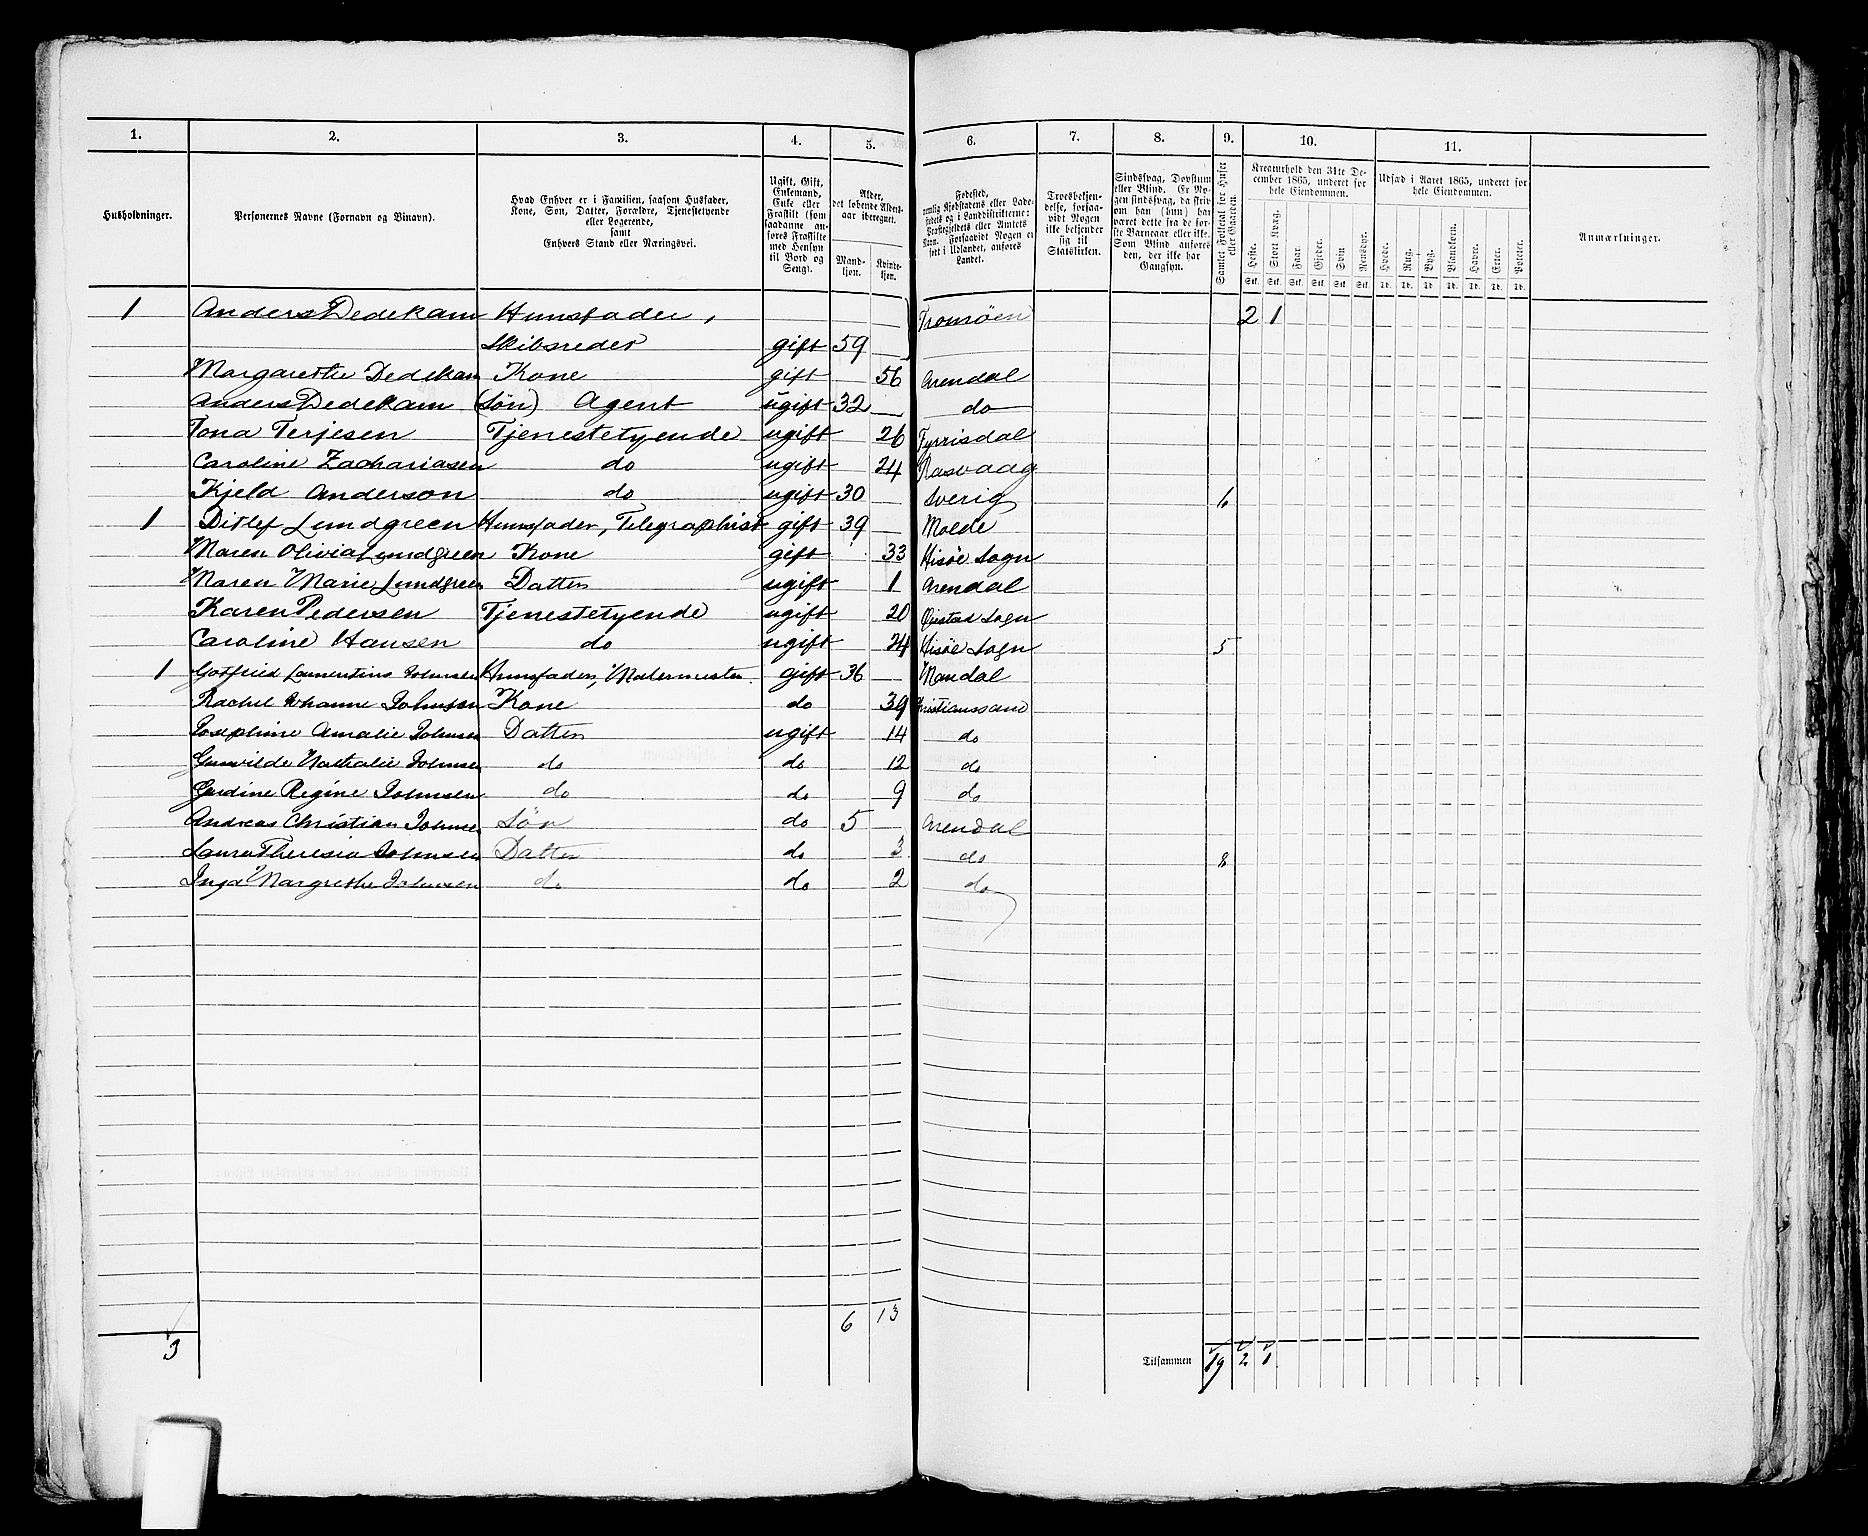 1. 2. 3. 4. 5. 6. 7. 8. 9. 10. 11.
Husholdninger.
Personernes Navne (Fornavn og Tilnavn).
Hvad Enhver er i Familien, saasom Husfader, Kone, Søn, Datter, Forældre, Tjenestetyende eller Logerende, samt Enhvers Stand eller Næringsvei.
Ugift, Gift, Enkemand, Enke eller Fraskilt (som saadanne anføres Fraskilte med Hensyn til Bord og Seng).
Alder, det løbende Aldersaar iberegnet.
Mandkjøn. Kvindekjøn.
Fødested,
Troesbekjendelse, forsaavidt Nogen ikke bekjender sig til Statskirken.
Sindssvag, Døvstum eller Blind.
Samlet Folketal for Huset eller Gaarden.
Kreaturhold den 31te December 1865, underet for hele Eiendommen.
Heste. Stort Kvæg. Faar. Gjeder. Svin. Rensdyr.
Udsæd i Aaret 1865, underet for hele Eiendommen.
Hvede. Rug. Byg. Blandkorn. Havre. Erter. Poteter.
Anmærkninger.
1 Anders Dedekam Huusfader, Tromøen 2 1
Skibsreder gift 59
Margarethe Dedekam Kone gift 56 Arendal
Anders Dedekam (Søn) Agent ugift 32 do
Tona Terjesen Tjenestetyende ugift 26 Tyrrisdal
Caroline Zachariasen do ugift 24 Rasvaag
Kjeld Anderson do ugift 30 Sverig 6
1 Ditlef Lundgreen Huusfader, Telegraphist gift 39 Molde
Maren Olivia Lundgreen Kone gift 33 Hisøe Sogn
Maren Marie Lundgreen Datter ugift 1 Arendal
Karen Pedersen Tjenestetyende ugift 20 Øiestad Sogn
Caroline Hansen do ugift 24 Hisøe Sogn 5
1 Gotfried Laurentius Johnsen Huusfader, Malermester gift 36 Mandal
Rachel Johanne Johnsen Kone do 39 Christianssand
Josephine Amalie Johnsen Datter ugift 14 do
Gunvilde Nathalie Johnsen do do 12 do
Gurdine Regine Johnsen do do 9 do
Andreas Christian Johnsen Søn do 5 Arendal
Laura Theresia Johnsen Datter do 3 do 8
Inga Margrethe Johnsen do do 2 do
6 13
3 Tilsammen 19 2 1